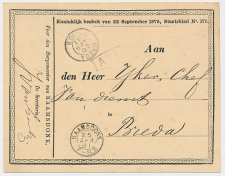 Koninklijk besluit van 22 September 1875, Staatsblad No. 173.
Voor den Burgemeester van RAAMSDONK,
De Secretaris
Aan
den Heer Yker, Chef
van dienst
te
Breda
RAAMSDONK